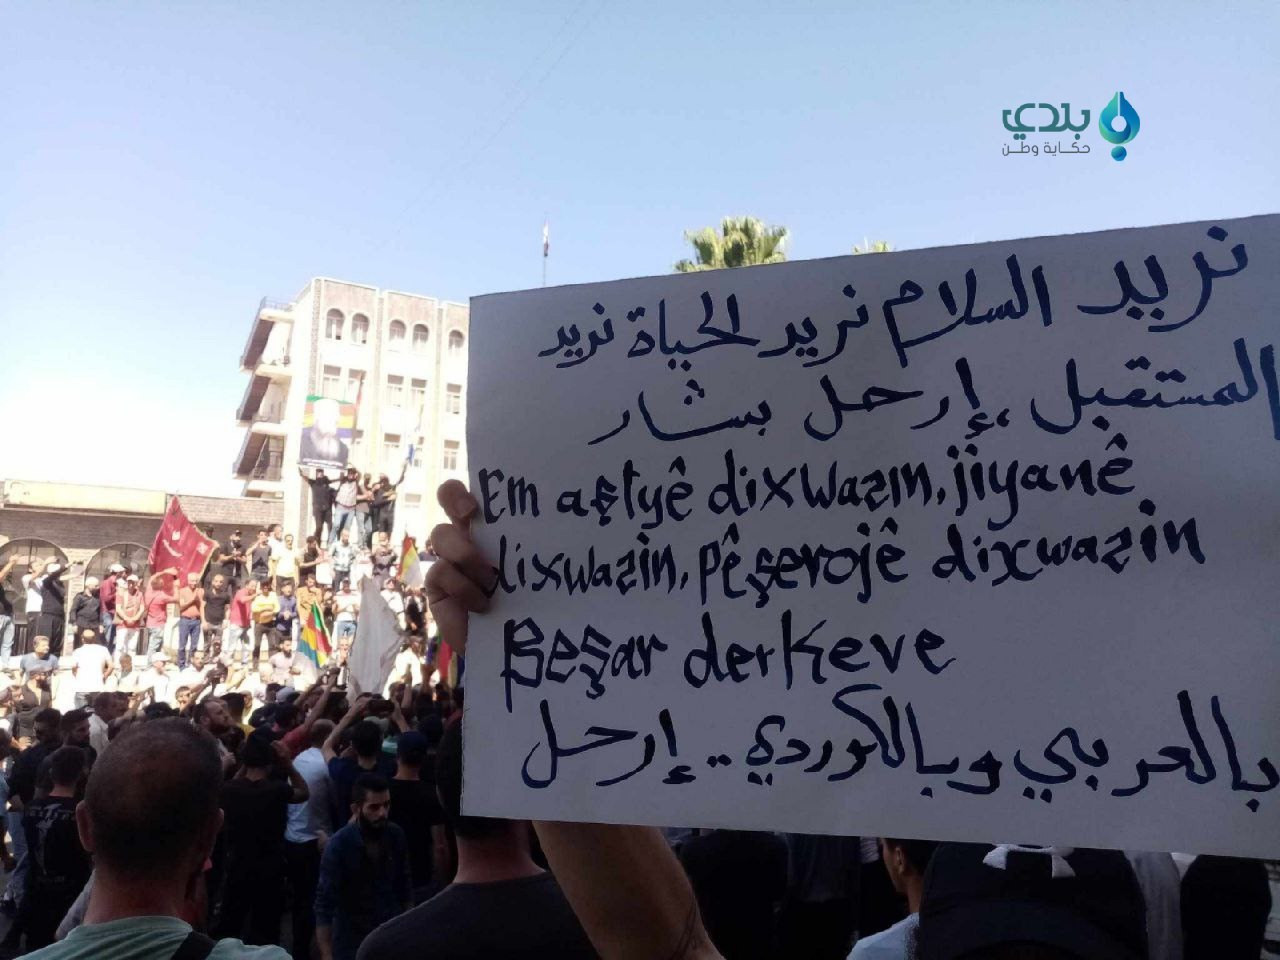 بلدي
حكاية وطن
نريد السلام نريد الحياة نريد
المستقبل، إرحل بشار
Em aştyê dixwazın, jiyanê
dixwazin, pêşerojê dixwazin
Beşar derkeve
بالعربي وبالكوردي .. إرحل